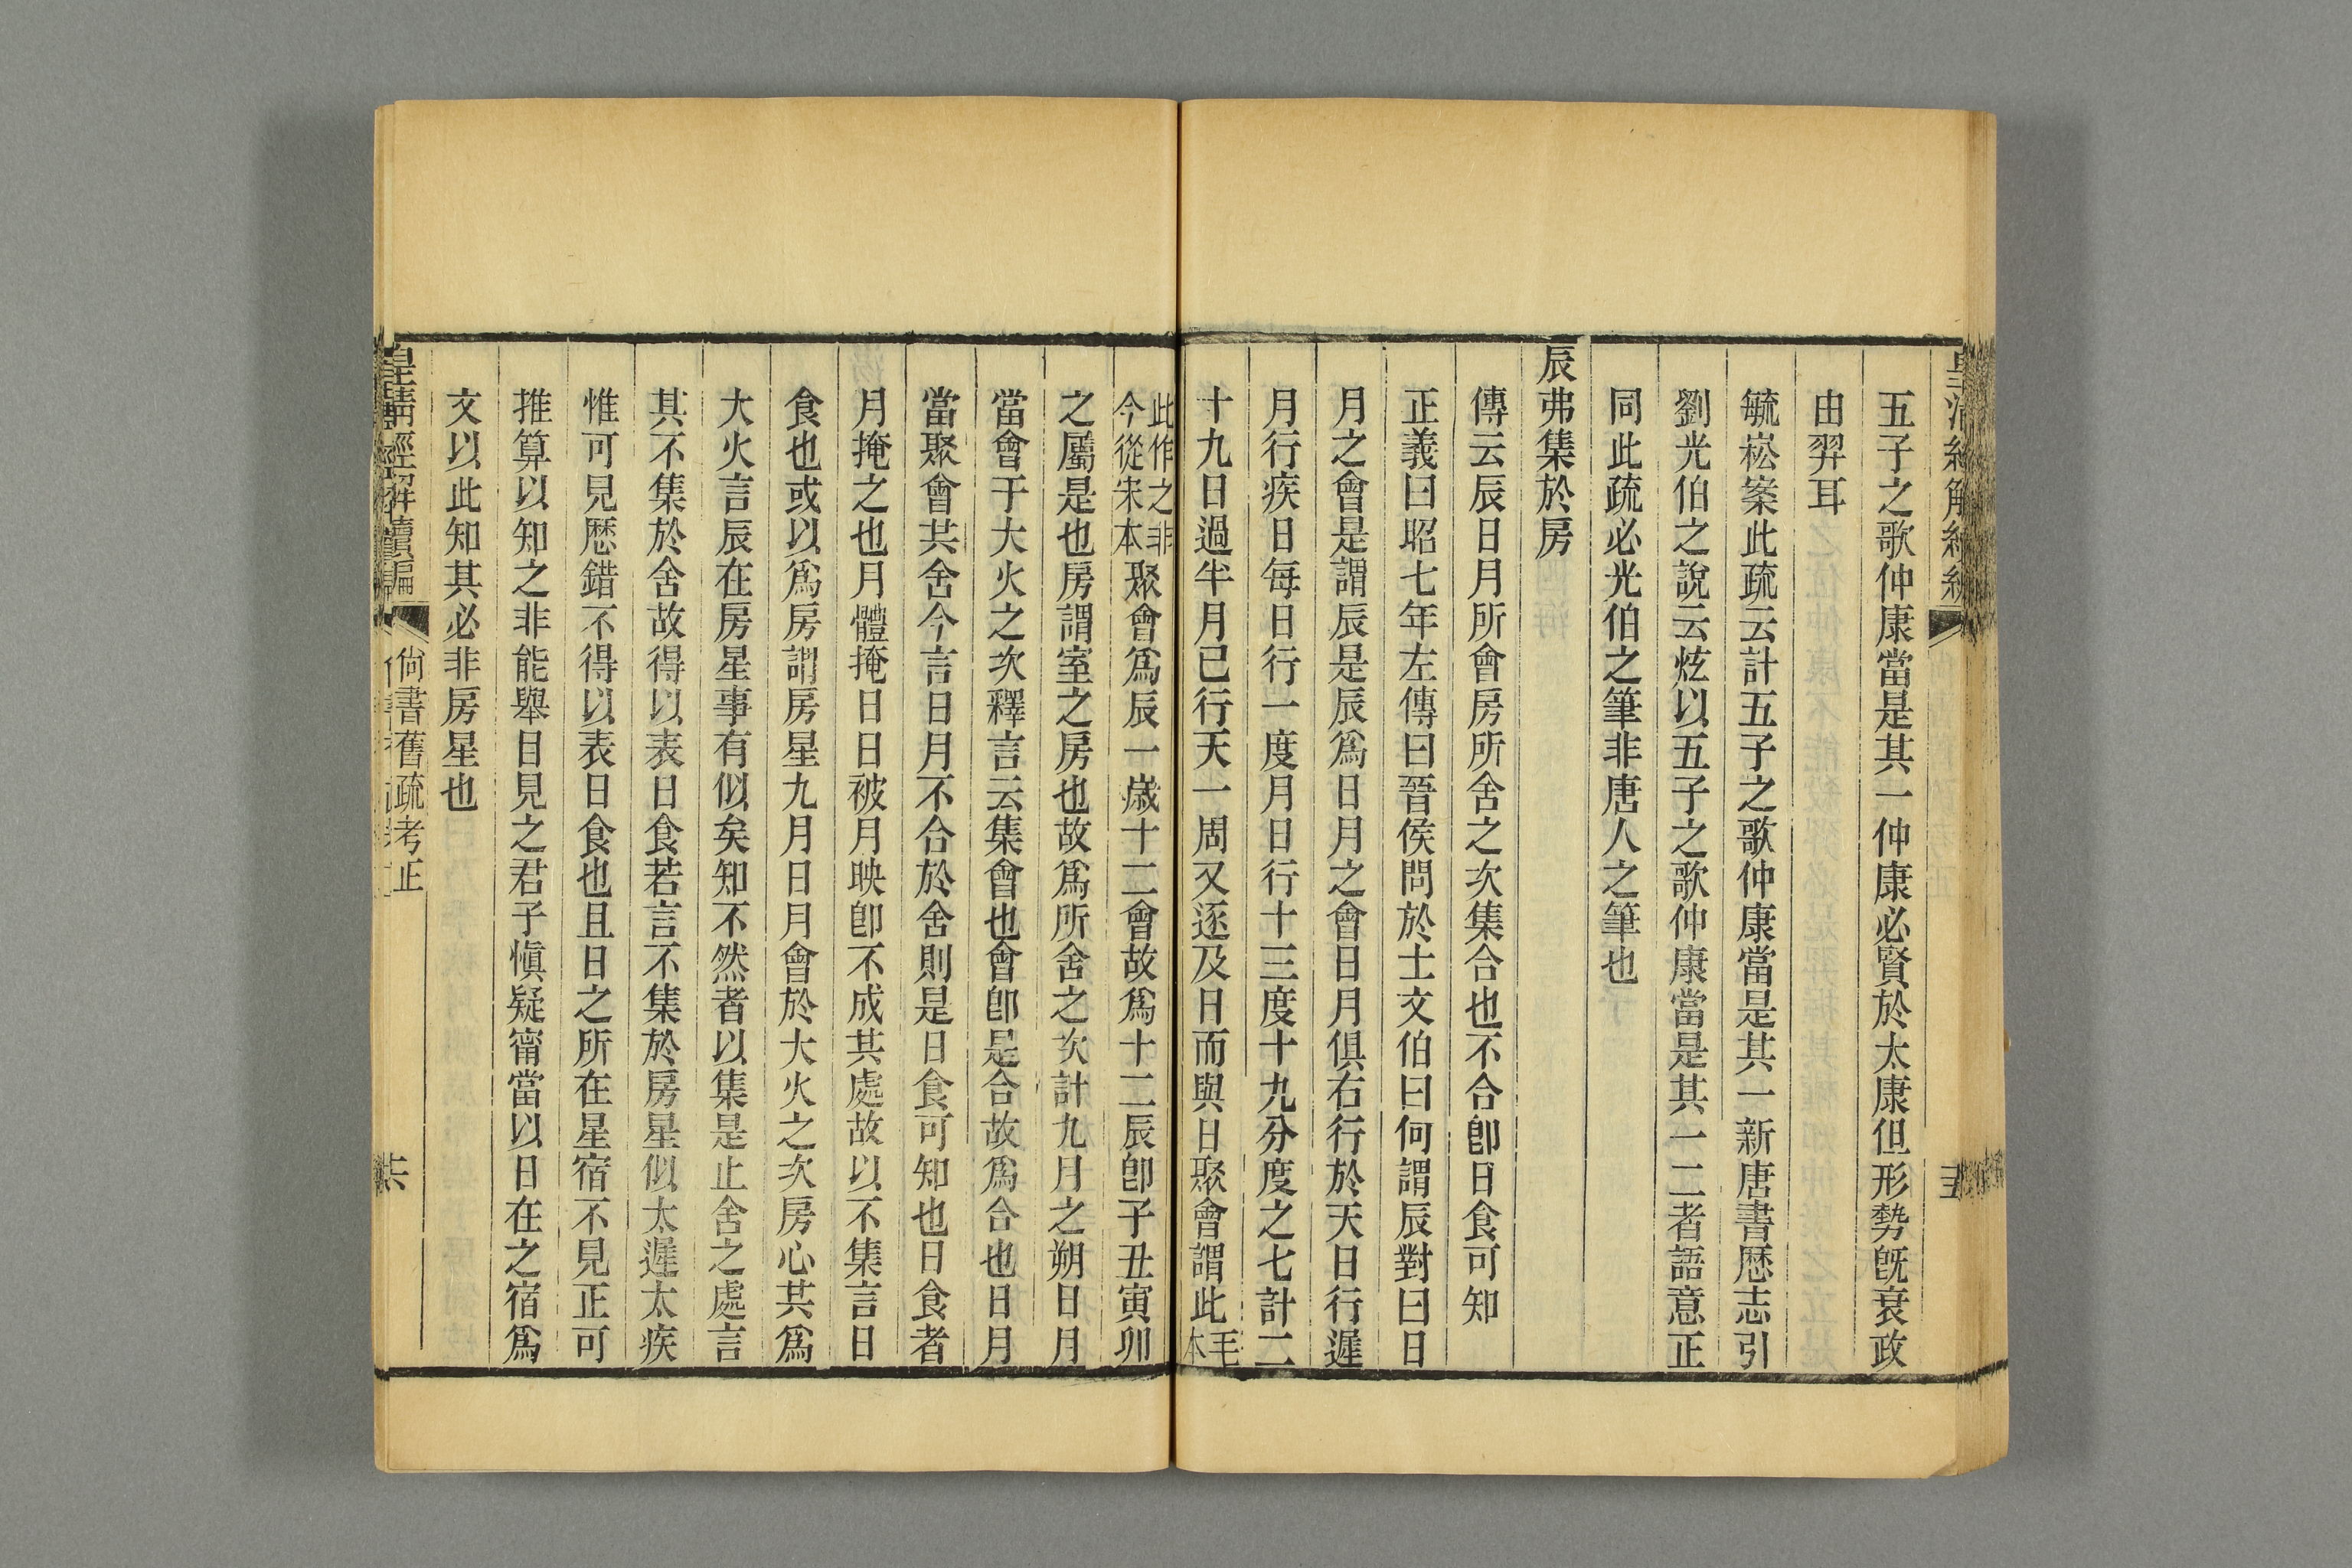 五子之歌仲康當是其一仲康必賢於太康但形勢旣衰政
由羿耳
毓崧案此疏云計五子之歌仲康當是其一新唐書厯志引
劉光伯之說云炫以五子之歌仲康當是其一二者語意正
同此疏必光伯之筆非唐人之筆也
辰弗集於房
傳云辰日月所會房所舍之次集合也不合卽日食可知
正義曰昭七年左傳曰晉侯問於士文伯曰何謂辰對曰日
月之會是謂辰是辰爲日月之會日月俱右行於天日行遲
月行疾日每日行一度月日行十三度十九分度之七計二
十九日過半月已行天一周又逐及日而與日聚會謂此毛本
此作之非今從宋本聚會爲辰一歲十二會故爲十二辰卽子丑寅卯
之屬是也房謂室之房也故爲所舍之次計九月之朔日月
當會于大火之次釋言云集會也會卽是合故爲合也日月
當聚會共舍今言日月不合於舍則是日食可知也日食者
月掩之也月體掩日日被月映卽不成共處故以不集言日
食也或以爲房謂房星九月日月會於大火之次房心共爲
大火言辰在房星事有似矣知不然者以集是止舍之處言
其不集於舍故得以表日食若言不集於房星似太遲太疾
惟可見厯錯不得以表日食也且日之所在星宿不見正可
推算以知之非能舉目見之君子愼疑甯當以日在之宿爲
文以此知其必非房星也
皇淸經解續編
尙書舊疏考正